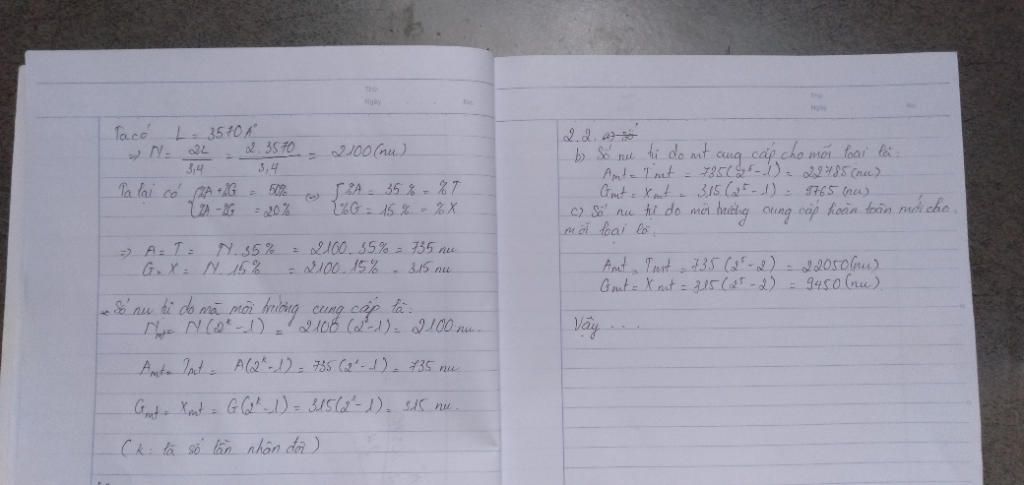 Thứ
Ngày No.
Ta có L = 3570 A°
⇒ N = 2L/3,4 = 2.3570/3,4 = 2100 (nu)
Ta lại có { %A + %G = 50% ⇔ { %A = 35% = %T
%A - %G = 20% %G = 15% = %X
⇒ A = T = N.35% = 2100.35% = 735 nu
G = X = N.15% = 2100.15% = 315 nu
Số nu tự do mà môi trường cung cấp là:
Nmt = N(2^k - 1) = 2100 (2^1 - 1) = 2100 nu.
Amt = Tmt = A(2^k - 1) = 735 (2^1 - 1) = 735 nu
Gmt = Xmt = G(2^k - 1) = 315 (2^1 - 1) = 315 nu.
(k: là số lần nhân đôi)
Thứ
Ngày No.
2.2. a) Số
b) Số nu tự do mt cung cấp cho mỗi loại là:
Amt = Tmt = 735 (2^5 - 1) = 22785 (nu)
Gmt = Xmt = 315 (2^5 - 1) = 9765 (nu)
c) Số nu tự do môi trường cung cấp hoàn toàn mới cho
mỗi loại là:
Amt = Tmt = 735 (2^5 - 2) = 22050 (nu)
Gmt = Xmt = 315 (2^5 - 2) = 9450 (nu)
Vậy ...